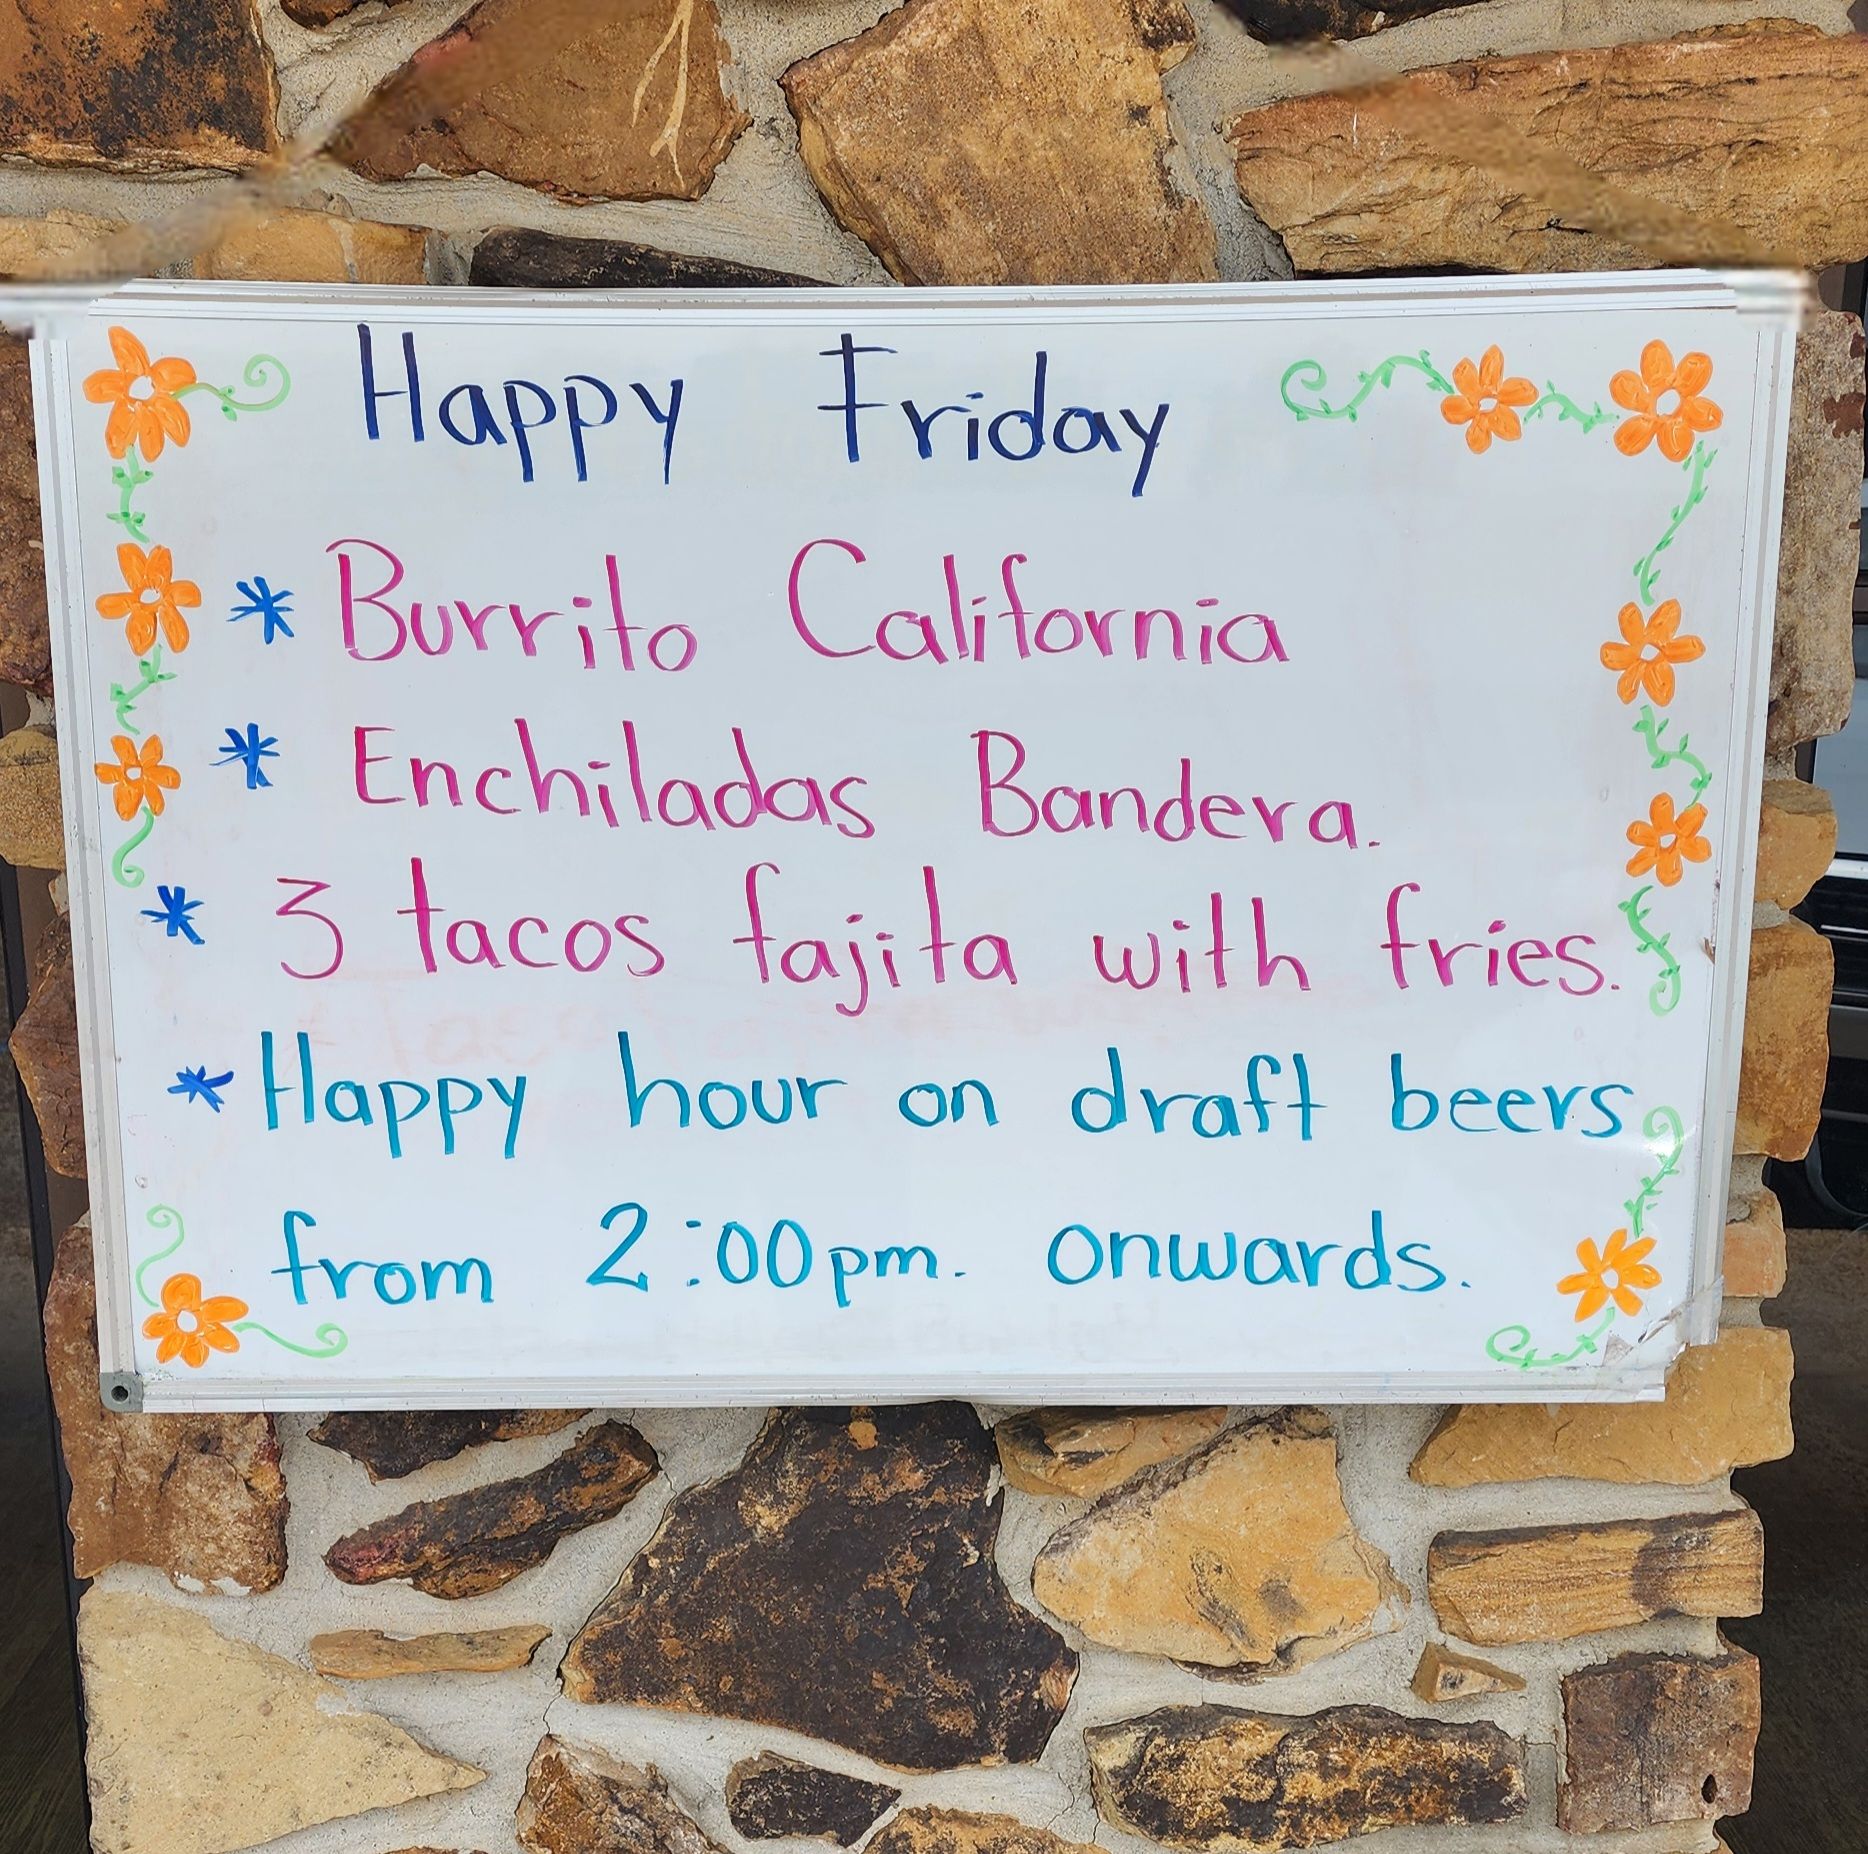 Happy Friday
* Burrito California
* Enchiladas Bandera.
* 3 tacos fajita with fries.
* Happy hour on draft beers
from 2:00pm. onwards.